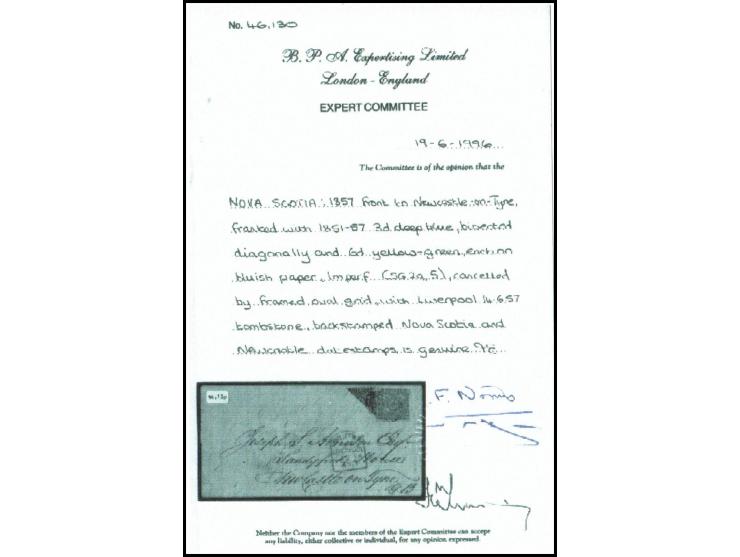 No. 46,130
B. P. A. Expertising Limited
London - England
EXPERT COMMITTEE
19-6-1996
The Committee is of the opinion that the
NOVA SCOTIA: 1857 front to Newcastle-on-Tyne,
franked with 1851-57 3d. deep blue, bisected
diagonally and 6d yellow-green, each on
bluish paper, Imperf (SG.2a, 5), cancelled
by framed oval grid, with Liverpool 14.6.57
tombstone, backstamped Nova Scotia and
Newcastle datestamps is genuine.
46,130
F. Norris
Joseph S.
Newcastle on Tyne
G B
Neither the Company nor the members of the Expert Committee can accept
any liability, either collective or individual, for any opinion expressed.